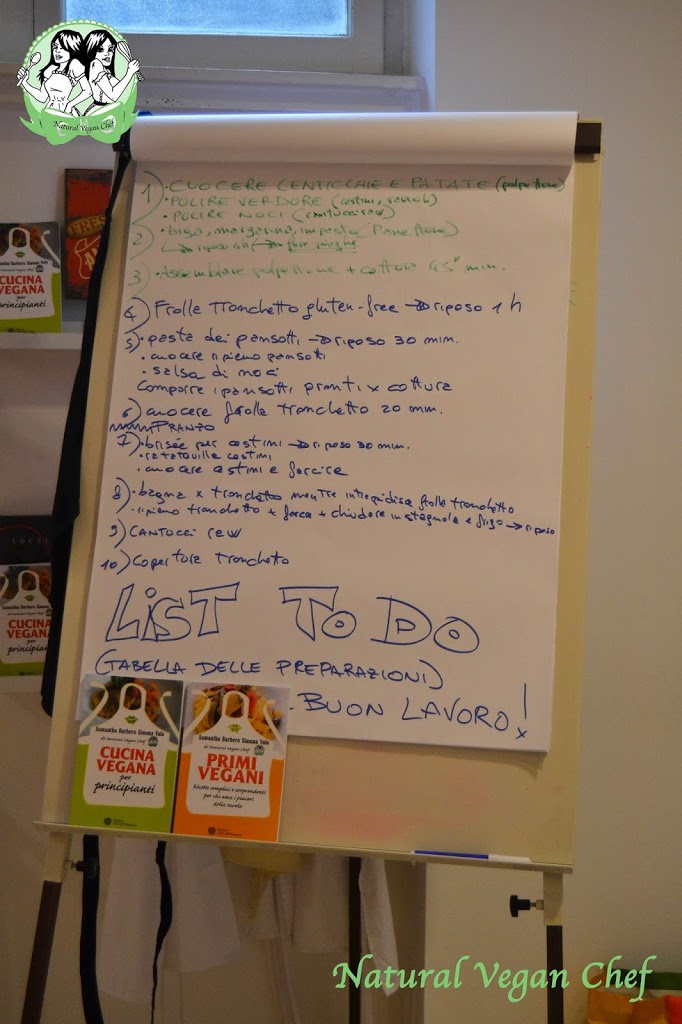 Natural Vegan Chef
1) • CUOCERE LENTICCHIE E PATATE (polpettone)
• PULIRE VERDURE (cestini, ravioli)
• PULIRE NOCI (cantucci raw)
2) • biga, margarina, impasto (Panettone)
riposo 4h fare pieghe
3) • Assemblare polpettone + cottura 45' min.
4) Frolle Tronchetto gluten-free → riposo 1 h
5) • pasta dei pansotti → riposo 30 min.
• cuocere ripieno pansotti
• salsa di noci
Comporre i pansotti pronti x cottura
6) cuocere frolle tronchetto 20 min.
PRANZO
7) • brisée per cestini → riposo 30 min.
• ratatouille cestini
• cuocere cestini e farcire
8) • bagna x tronchetto mentre intiepidisce frolle tronchetto
• ripieno tronchetto + farcia + chiudere in stagnola e frigo → riposo
9) CANTUCCI raw
10) Copertura Tronchetto
LIST TO DO
(TABELLA DELLE PREPARAZIONI)
BUON LAVORO!
Samantha Barbero Simona Volo
di Natural Vegan Chef
CUCINA
VEGANA
per
principianti
Samantha Barbero Simona Volo
di Natural Vegan Chef
PRIMI
VEGANI
Ricette semplici e sorprendenti
per chi ama i piaceri
della tavola
FRES
Samantha Barbero Simona Volo
CUCINA
VEGANA
per
principianti
LOCAL
Samantha Barbero Simona Volo
CUCINA
VEGANA
per
principianti
Natural Vegan Chef